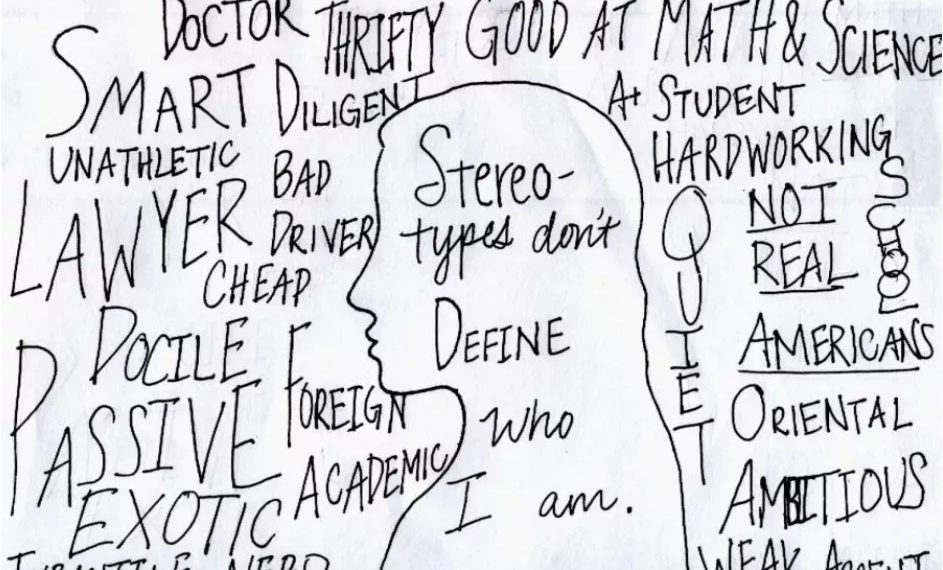 DOCTOR
THRIFTY
GOOD AT MATH & SCIENCE
SMART
DILIGENT
A+ STUDENT
UNATHLETIC
BAD
DRIVER
HARDWORKING
LAWYER
CHEAP
Stereo-
types don't
DEFINE
who
I am.
QUIET
NOT
REAL
AMERICANS
DOCILE
FOREIGN
PASSIVE
ACADEMIC
ORIENTAL
EXOTIC
AMBITIOUS
NERD
WEAK
ACCENT